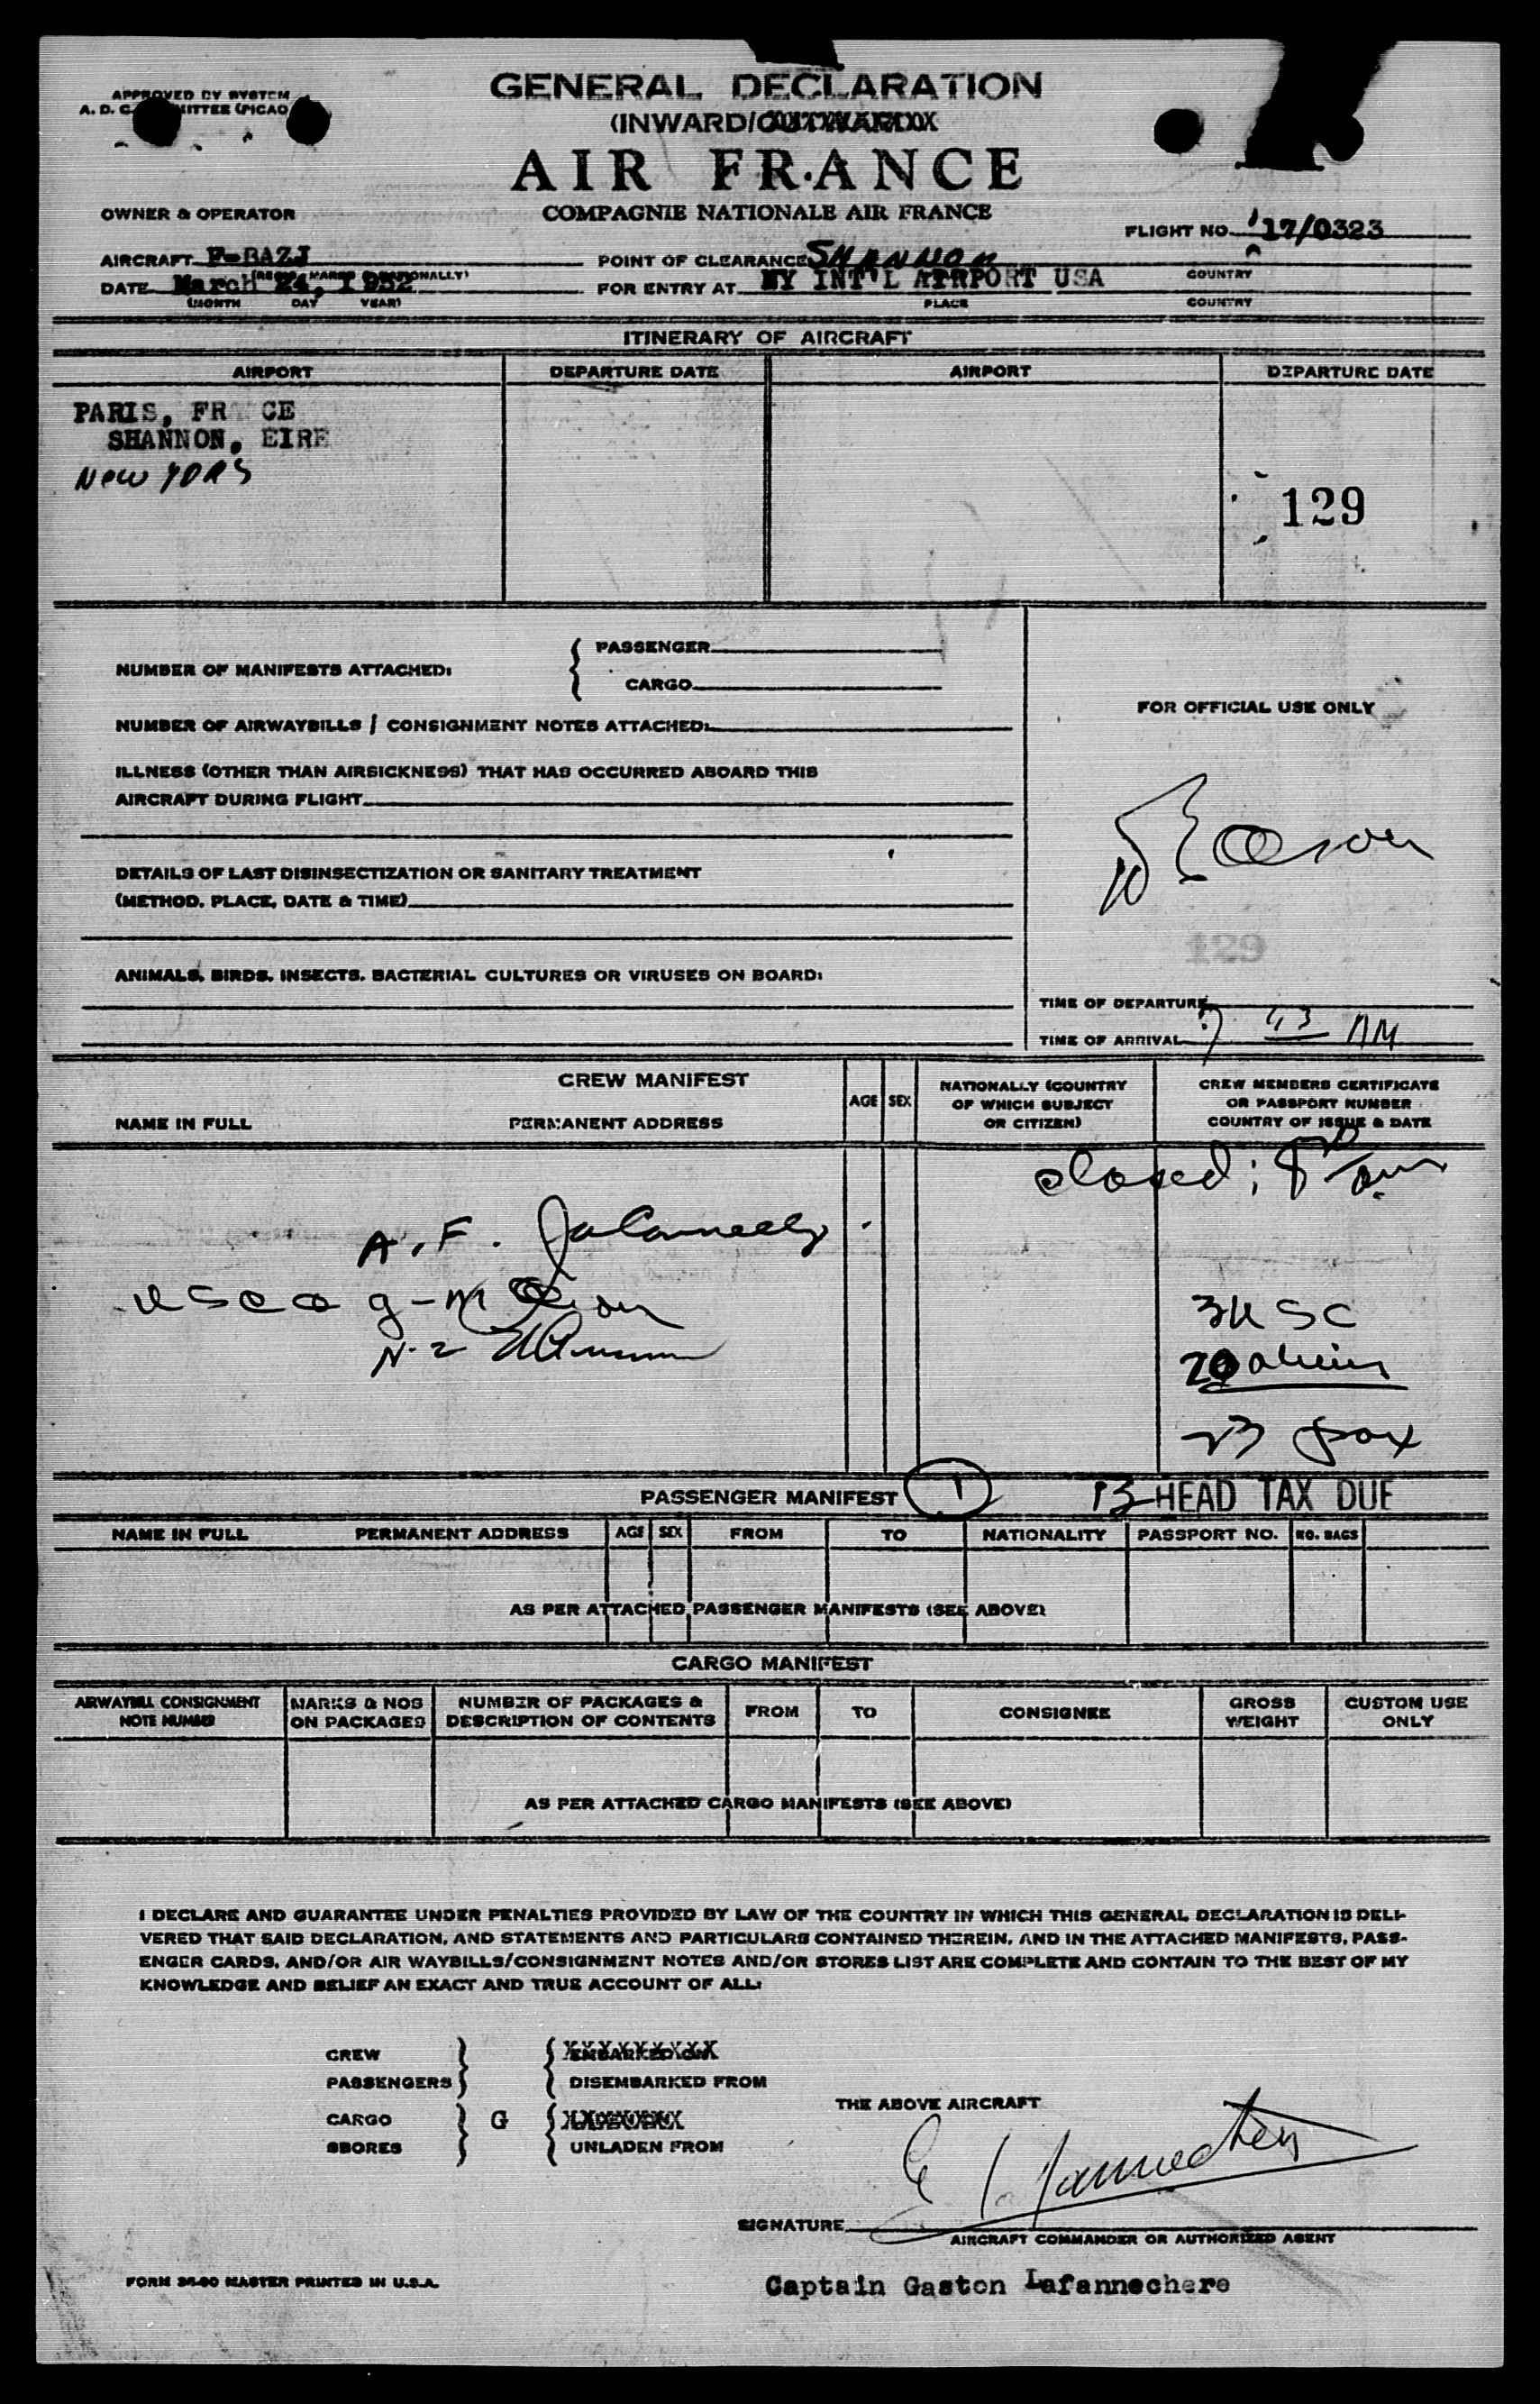 APPROVED BY SYSTEM
GENERAL DECLARATION
(INWARD/
AIR FRANCE
COMPAGNIE NATIONALE AIR FRANCE
OWNER & OPERATOR
FLIGHT NO. 17/0323
AIRCRAFT F-BAZJ POINT OF CLEARANCE SHANNON COUNTRY
DATE March 24, 1952 FOR ENTRY AT NY INT'L AIRPORT USA
(MONTH DAY YEAR) PLACE COUNTRY
ITINERARY OF AIRCRAFT
AIRPORT DEPARTURE DATE AIRPORT DEPARTURE DATE
PARIS, FR CE
SHANNON, EIRE
NEW YORK
129
NUMBER OF MANIFESTS ATTACHED: PASSENGER
CARGO
FOR OFFICIAL USE ONLY
NUMBER OF AIRWAYBILLS / CONSIGNMENT NOTES ATTACHED:
ILLNESS (OTHER THAN AIRSICKNESS) THAT HAS OCCURRED ABOARD THIS
AIRCRAFT DURING FLIGHT
DETAILS OF LAST DISINSECTIZATION OR SANITARY TREATMENT
(METHOD, PLACE, DATE & TIME)
129
ANIMALS, BIRDS, INSECTS, BACTERIAL CULTURES OR VIRUSES ON BOARD:
TIME OF DEPARTURE
TIME OF ARRIVAL 7 43 AM
CREW MANIFEST
NAME IN FULL PERMANENT ADDRESS AGE SEX NATIONALLY (COUNTRY OF WHICH SUBJECT OR CITIZEN) CREW MEMBERS CERTIFICATE OR PASSPORT NUMBER COUNTRY OF ISSUE & DATE
closed;
A.F.
3 USC
20 aliens
23 pax
PASSENGER MANIFEST 1 13 HEAD TAX DUE
NAME IN FULL PERMANENT ADDRESS AGE SEX FROM TO NATIONALITY PASSPORT NO. NO. BAGS
AS PER ATTACHED PASSENGER MANIFESTS (SEE ABOVE)
CARGO MANIFEST
AIRWAYBILL CONSIGNMENT NOTE NUMBER MARKS & NOS ON PACKAGES NUMBER OF PACKAGES & DESCRIPTION OF CONTENTS FROM TO CONSIGNEE GROSS WEIGHT CUSTOM USE ONLY
AS PER ATTACHED CARGO MANIFESTS (SEE ABOVE)
I DECLARE AND GUARANTEE UNDER PENALTIES PROVIDED BY LAW OF THE COUNTRY IN WHICH THIS GENERAL DECLARATION IS DELI-
VERED THAT SAID DECLARATION, AND STATEMENTS AND PARTICULARS CONTAINED THEREIN, AND IN THE ATTACHED MANIFESTS, PASS-
ENGER CARDS, AND/OR AIR WAYBILLS/CONSIGNMENT NOTES AND/OR STORES LIST ARE COMPLETE AND CONTAIN TO THE BEST OF MY
KNOWLEDGE AND BELIEF AN EXACT AND TRUE ACCOUNT OF ALL:
CREW EMBARKED ON
PASSENGERS DISEMBARKED FROM
THE ABOVE AIRCRAFT
CARGO G
SBORES UNLADEN FROM
SIGNATURE
AIRCRAFT COMMANDER OR AUTHORIZED AGENT
FORM 34-90 MASTER PRINTED IN U.S.A.
Captain Gaston Lafannechere